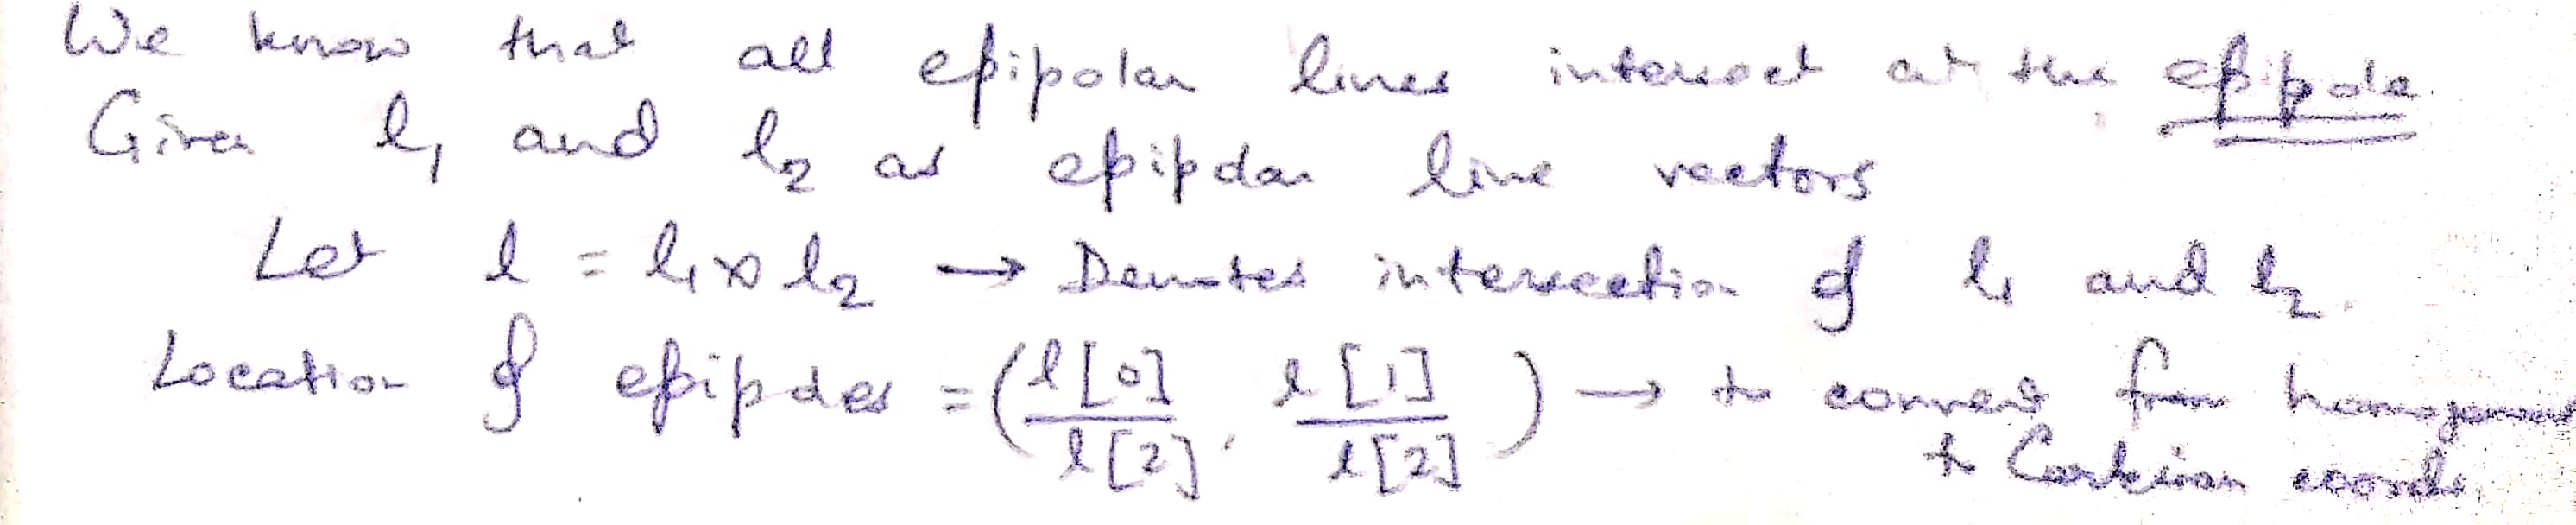 We know that all epipolar lines intersect at the epipole.
Given l₁ and l₂ as epipolar line vectors
Let l = l₁ × l₂ → Denotes intersection of l₁ and l₂.
Location of epipoles = (l[0]/l[2], l[1]/l[2]) → to convert from homogenous
to Cartesian coords.